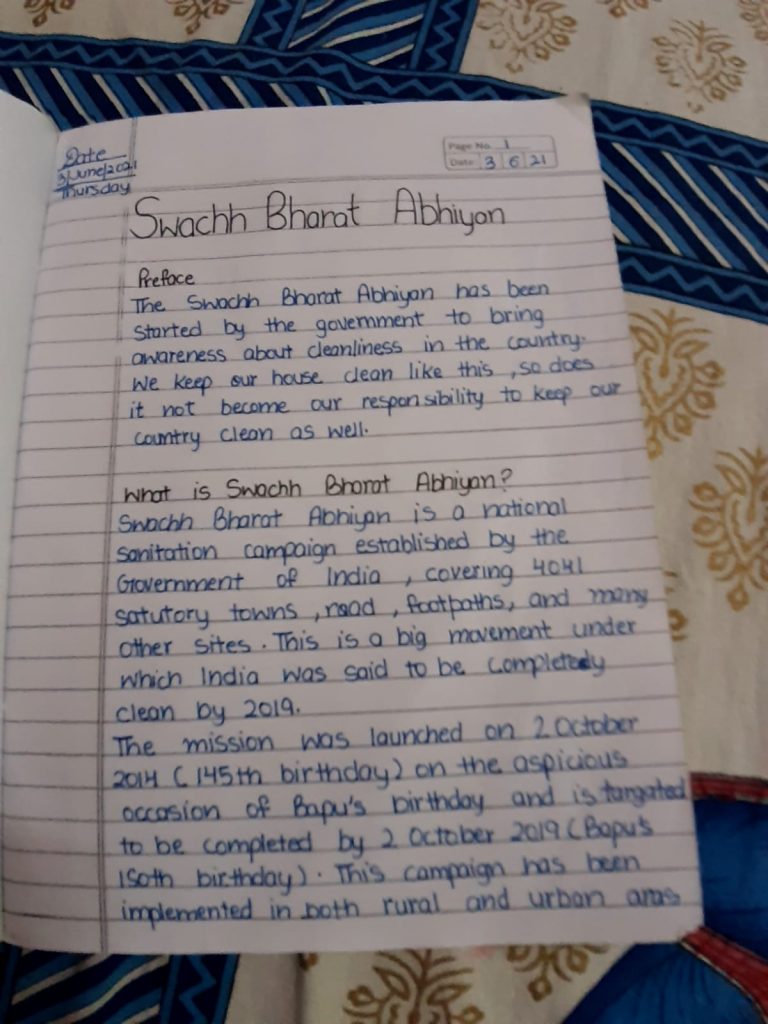 Date
3/June/2021
Thursday
Page No. 1
Date 3 6 21
Swachh Bharat Abhiyan
Preface
The Swachh Bharat Abhiyan has been
started by the government to bring
awareness about cleanliness in the country.
We keep our house clean like this , so does
it not become our responsibility to keep our
country clean as well.
What is Swachh Bharat Abhiyan?
Swachh Bharat Abhiyan is a national
sanitation campaign established by the
Government of India , covering 4041
satutory towns , road , footpaths, and many
other sites . This is a big movement under
which India was said to be completedy
clean by 2019.
The mission was launched on 2 October
2014 ( 145th birthday) on the aspicious
occasion of Bapu's birthday and is targated
to be completed by 2 October 2019 ( Bapu's
150th birthday) . This campaign has been
implemented in both rural and urban aras